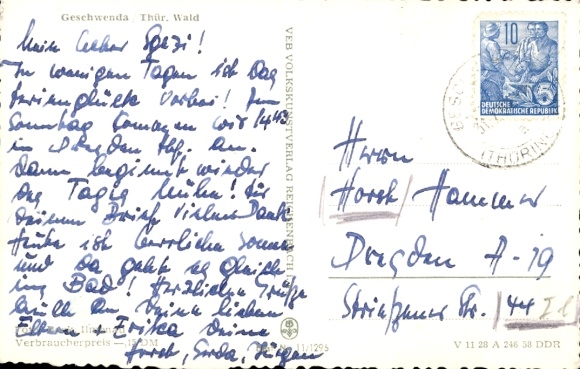 Geschwenda, Thür. Wald
Mein lieber Spezi!
In wenigen Tagen ist das
Ferienglück vorbei! Am
Sonntag kommen wir 14⁴³
in Dresden Hbf. an.
Dann beginnt wieder
des Tages Mühen! Für
Deinen Brief vielen Dank
Heute ist herrliche Sonne
und da geht es gleich
ins Bad! Herzliche Grüße
Deine lieben
Eltern + Erika Deine
Horst, Gerda, Jürgen
Verbraucherpreis — DM
11/1296
VEB VOLKSKUNSTVERLAG REICHENBACH
10
DEUTSCHE
DEMOKRATISCHE REPUBLIK
5
(THÜRING
Herrn
Horst Hammer
Dresden A-19
Str. 44
V 11 28 A 246 58 DDR